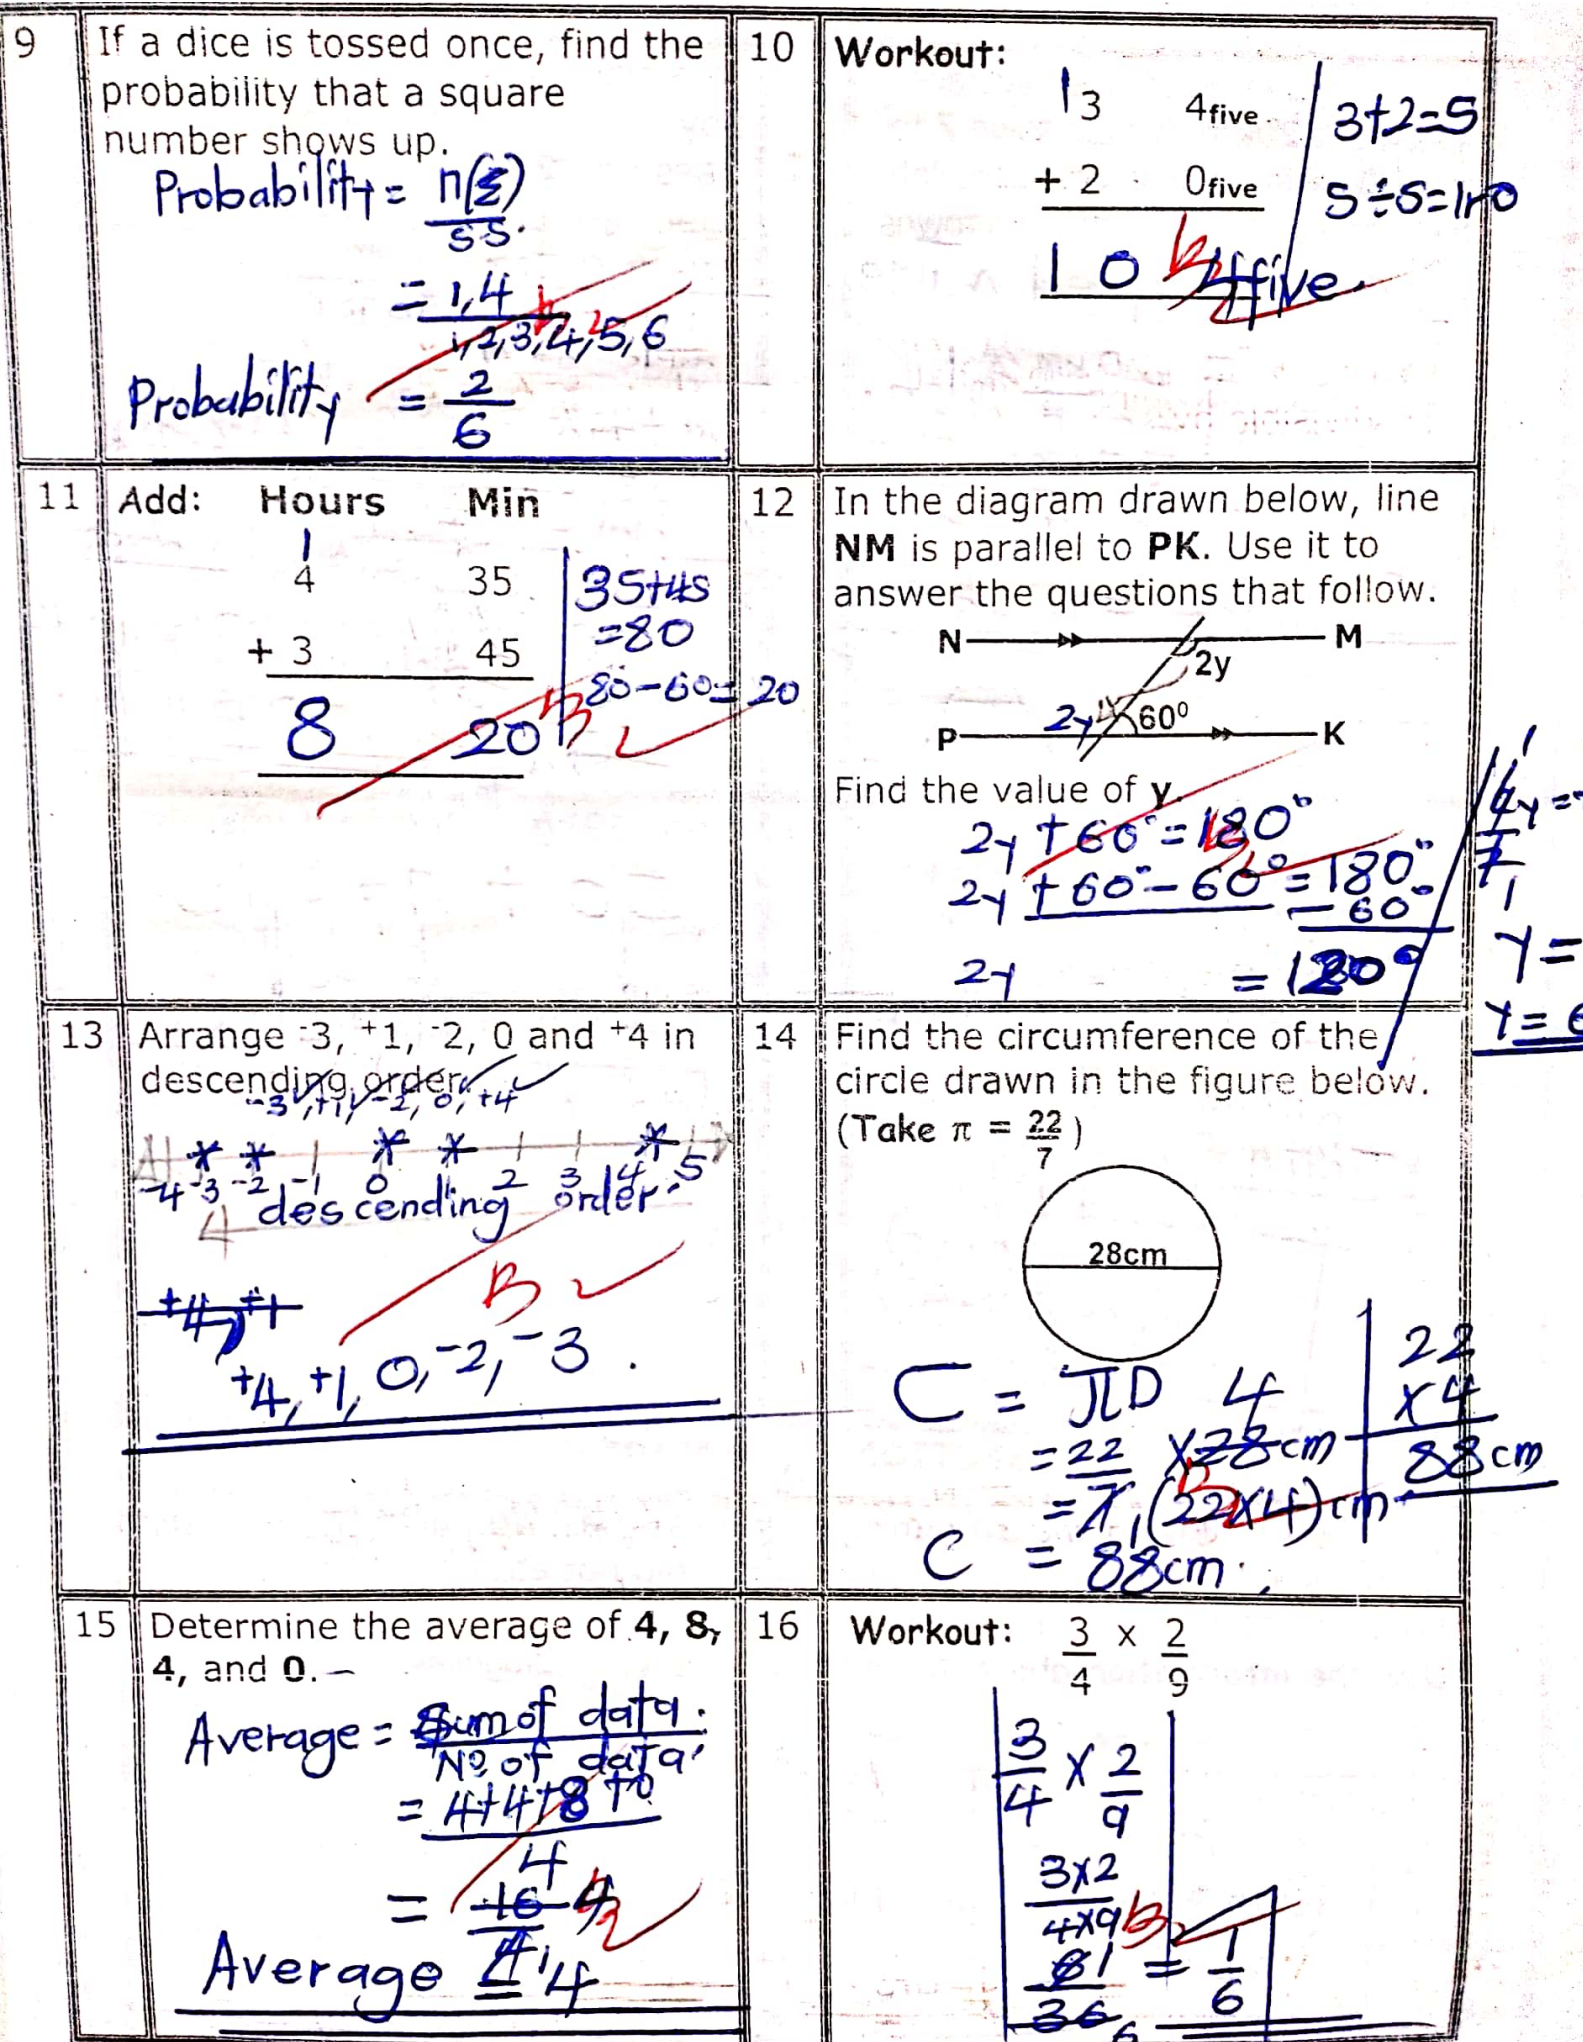 9
If a dice is tossed once, find the
probability that a square
number shows up.
Probability = n(E)
SS.
= 1,4
1,2,3,4,5,6
Probability = 2
6
10
Workout:
1
3 4five
+ 2 0five
1 0 4five.
3+2=5
5÷5=1r0
11
Add: Hours Min
1
4 35
+ 3 45
8 20
35+45
=80
80-60=20
12
In the diagram drawn below, line
NM is parallel to PK. Use it to
answer the questions that follow.
N M
2y
2y 60⁰
P K
Find the value of y.
2y + 60° = 180°
2y + 60° - 60° = 180°
- 60°
2y = 120°
y =
y =
13
Arrange ⁻3, ⁺1, ⁻2, 0 and ⁺4 in
descending order.
-3, +1, -2, 0, +4
-4 -3 -2 -1 0 1 2 3 4 5
descending order.
+4, +1
+4, +1, 0, -2, -3.
14
Find the circumference of the
circle drawn in the figure below.
(Take π = 22/7)
28cm
C = πD
4
= 22 × 28cm
= 7 1 (22×4)cm
C = 88cm.
22
×4
88cm
15
Determine the average of 4, 8,
4, and 0.
Average = Sum of data.
No of data
= 4+4+8+0
4
= 16 4
4 1
Average = 4
16
Workout: 3/4 x 2/9
3/4 × 2/9
3×2
4×9
6 1 = 1
36 6
6